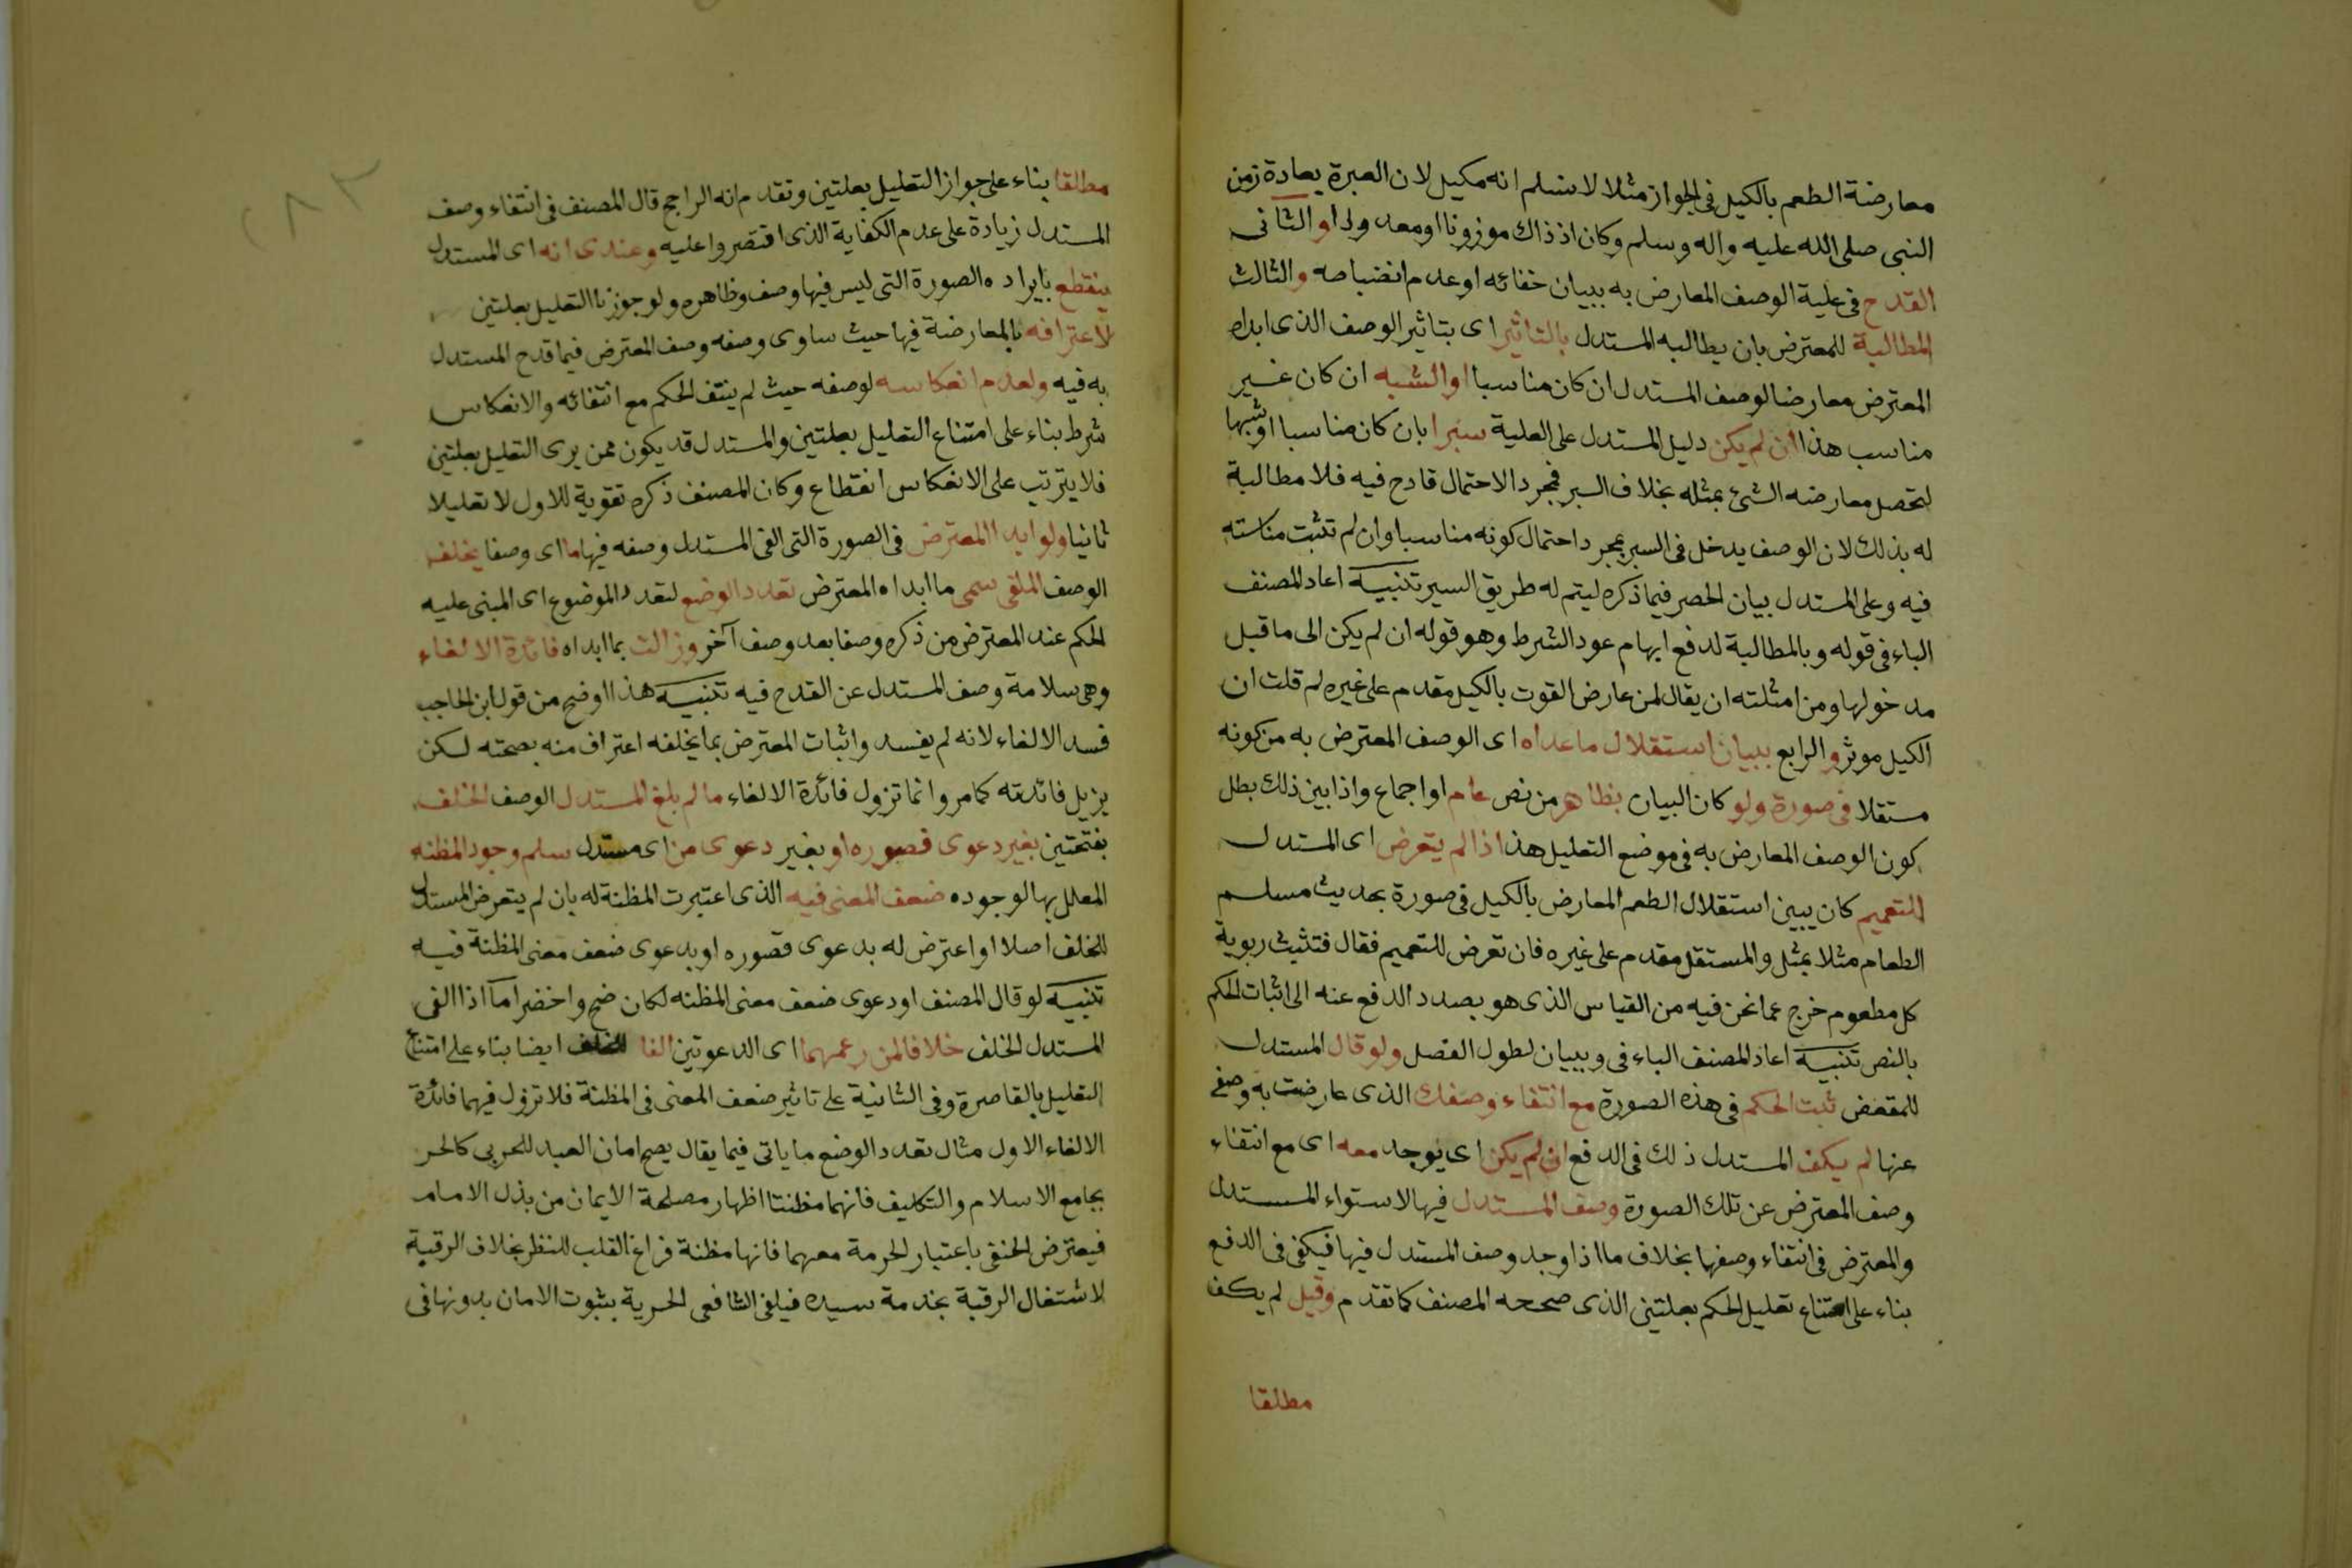 معارضة الطعم بالكيل فى الجواز مثلا لا نسلم انه مكيل لان العبرة بعادة زمن
النبى صلى الله عليه واله وسلم وكان اذ ذاك موزونا او معدودا او الثانى
القدح فى علية الوصف المعارض به ببيان خفائه او عدم انضباطه والثالث
المطالبة للمعترض بان يطالبه المستدل بالتاثير اى بتاثير الوصف الذى ابداه
المعترض معارضا لوصف المستدل ان كان مناسبا او الشبه ان كان غير
مناسب هذا ان لم يكن دليل المستدل على العلية سبرا بان كان مناسبا او شبها
لتحصل معارضه الشئ بمثله بخلاف السبر فمجرد الاحتمال قادح فيه فلا مطالبة
له بذلك لان الوصف يدخل فى السبر بمجرد احتمال كونه مناسبا وان لم تثبت مناسبته
فيه وعلى المستدل بيان الحصر فيما ذكره ليتم له طريق السبر تنبيه اعاد المصنف
الباء فى قوله وبالمطالبة لدفع ايهام عود الشرط وهو قوله ان لم يكن الى ما قبل
مدخولها ومن امثلته ان يقال لمن عارض القوت بالكيل مقدم على غيره لم قلت ان
الكيل موثر والرابع ببيان استقلال ما عداه اى الوصف المعترض به من كونه
مستقلا فى صورة ولو كان البيان بظاهر من نص عام او اجماع واذا بين ذلك بطل
كون الوصف المعارض به فى موضع التعليل هذا اذا لم يتعرض اى المستدل
للتعميم كان يبين استقلال الطعم المعارض بالكيل فى صورة بحديث مسلم
الطعام مثلا بمثل والمستقل مقدم على غيره فان تعرض للتعميم فقال فتثبت ربوية
كل مطعوم خرج عما نحن فيه من القياس الذى هو بصدد الدفع عنه الى اثبات الحكم
بالنص تنبيه اعاد المصنف الباء فى وببيان لطول الفصل ولو قال المستدل
للمعترض ثبت الحكم فى هذه الصورة مع انتفاء وصفك الذى عارضت به وصفى
عنها لم يكف المستدل ذلك فى الدفع ان لم يكن اى يوجد معه اى مع انتفاء
وصف المعترض عن تلك الصورة وصف المستدل فيها لاستواء المستدل
والمعترض فى انتفاء وصفها بخلاف ما اذا وجد وصف المستدل فيها فيكفى فى الدفع
بناء على امتناع تعليل الحكم بعلتين الذى صححه المصنف كما تقدم وقيل لم يكف
مطلقا
مطلقا بناء على جواز التعليل بعلتين وتقدم انه الراجح قال المصنف فى انتفاء وصف
المستدل زيادة على عدم الكفاية الذى اقتصروا عليه وعندى انه اى المستدل
ينقطع بايراده الصورة التى ليس فيها وصف وظاهره ولو جوزنا التعليل بعلتين
لاعترافه بالمعارضة فيها حيث ساوى وصفه وصف المعترض فيما قدح المستدل
به فيه ولعدم انعكاسه لوصفه حيث لم ينتف الحكم مع انتفائه والانعكاس
شرط بناء على امتناع التعليل بعلتين والمستدل قد يكون ممن يرى التعليل بعلتين
فلا يترتب على الانعكاس انقطاع وكان المصنف ذكره تقوية للاول لا تعليلا
ثانيا ولو ابدا المعترض فى الصورة التى الغى المستدل وصفه فيها ما اى وصفا يخلف
الوصف الملغى سمى ما ابداه المعترض تعدد الوضع لتعدد الموضوع اى المبنى عليه
الحكم عند المعترض من ذكره وصفا بعد وصف آخر وزالت بما ابداه فائدة الالغاء
وهى سلامة وصف المستدل عن القدح فيه تنبيه هذا اوضح من قول ابن الحاجب
فسد الالغاء لانه لم يفسد واثبات المعترض بما يخلفه اعتراف منه بصحته لكن
يزيل فائدته كما مر وانما تزول فائدة الالغاء ما لم يلغ المستدل الوصف الخلف
بفتحتين بغير دعوى قصوره او بغير دعوى من اى مستدل سلم وجود المظنه
المعلل بها لوجوده ضعف المعنى فيه الذى اعتبرت المظنة له بان لم يتعرض المستدل
للخلف اصلا او اعترض له بدعوى قصوره او بدعوى ضعف معنى المظنة فيه
تنبيه لو قال المصنف او دعوى ضعف معنى المظنه لكان ضح واخضر اما اذا الغى
المستدل الخلف خلافا لمن زعمهما اى الدعوتين الغا للخلف ايضا بناء على امتناع
التعليل بالقاصرة وفى الثانية على تاثير ضعف المعنى فى المظنة فلا تزول فيهما فائدة
الالغاء الاول مثال تعدد الوضع ما ياتى فيما يقال يصح امان العبد للحربى كالحر
بجامع الاسلام والتكليف فانهما مظنتا اظهار مصلحة الايمان من بذل الامام
فيعترض الحنفى باعتبار الحرمة معهما فانها مظنة فراغ القلب للنظر بخلاف الرقبة
لاشتغال الرقبة بخدمة سيده فيلغى الشافعى الحرية بثبوت الامان بدونها فى